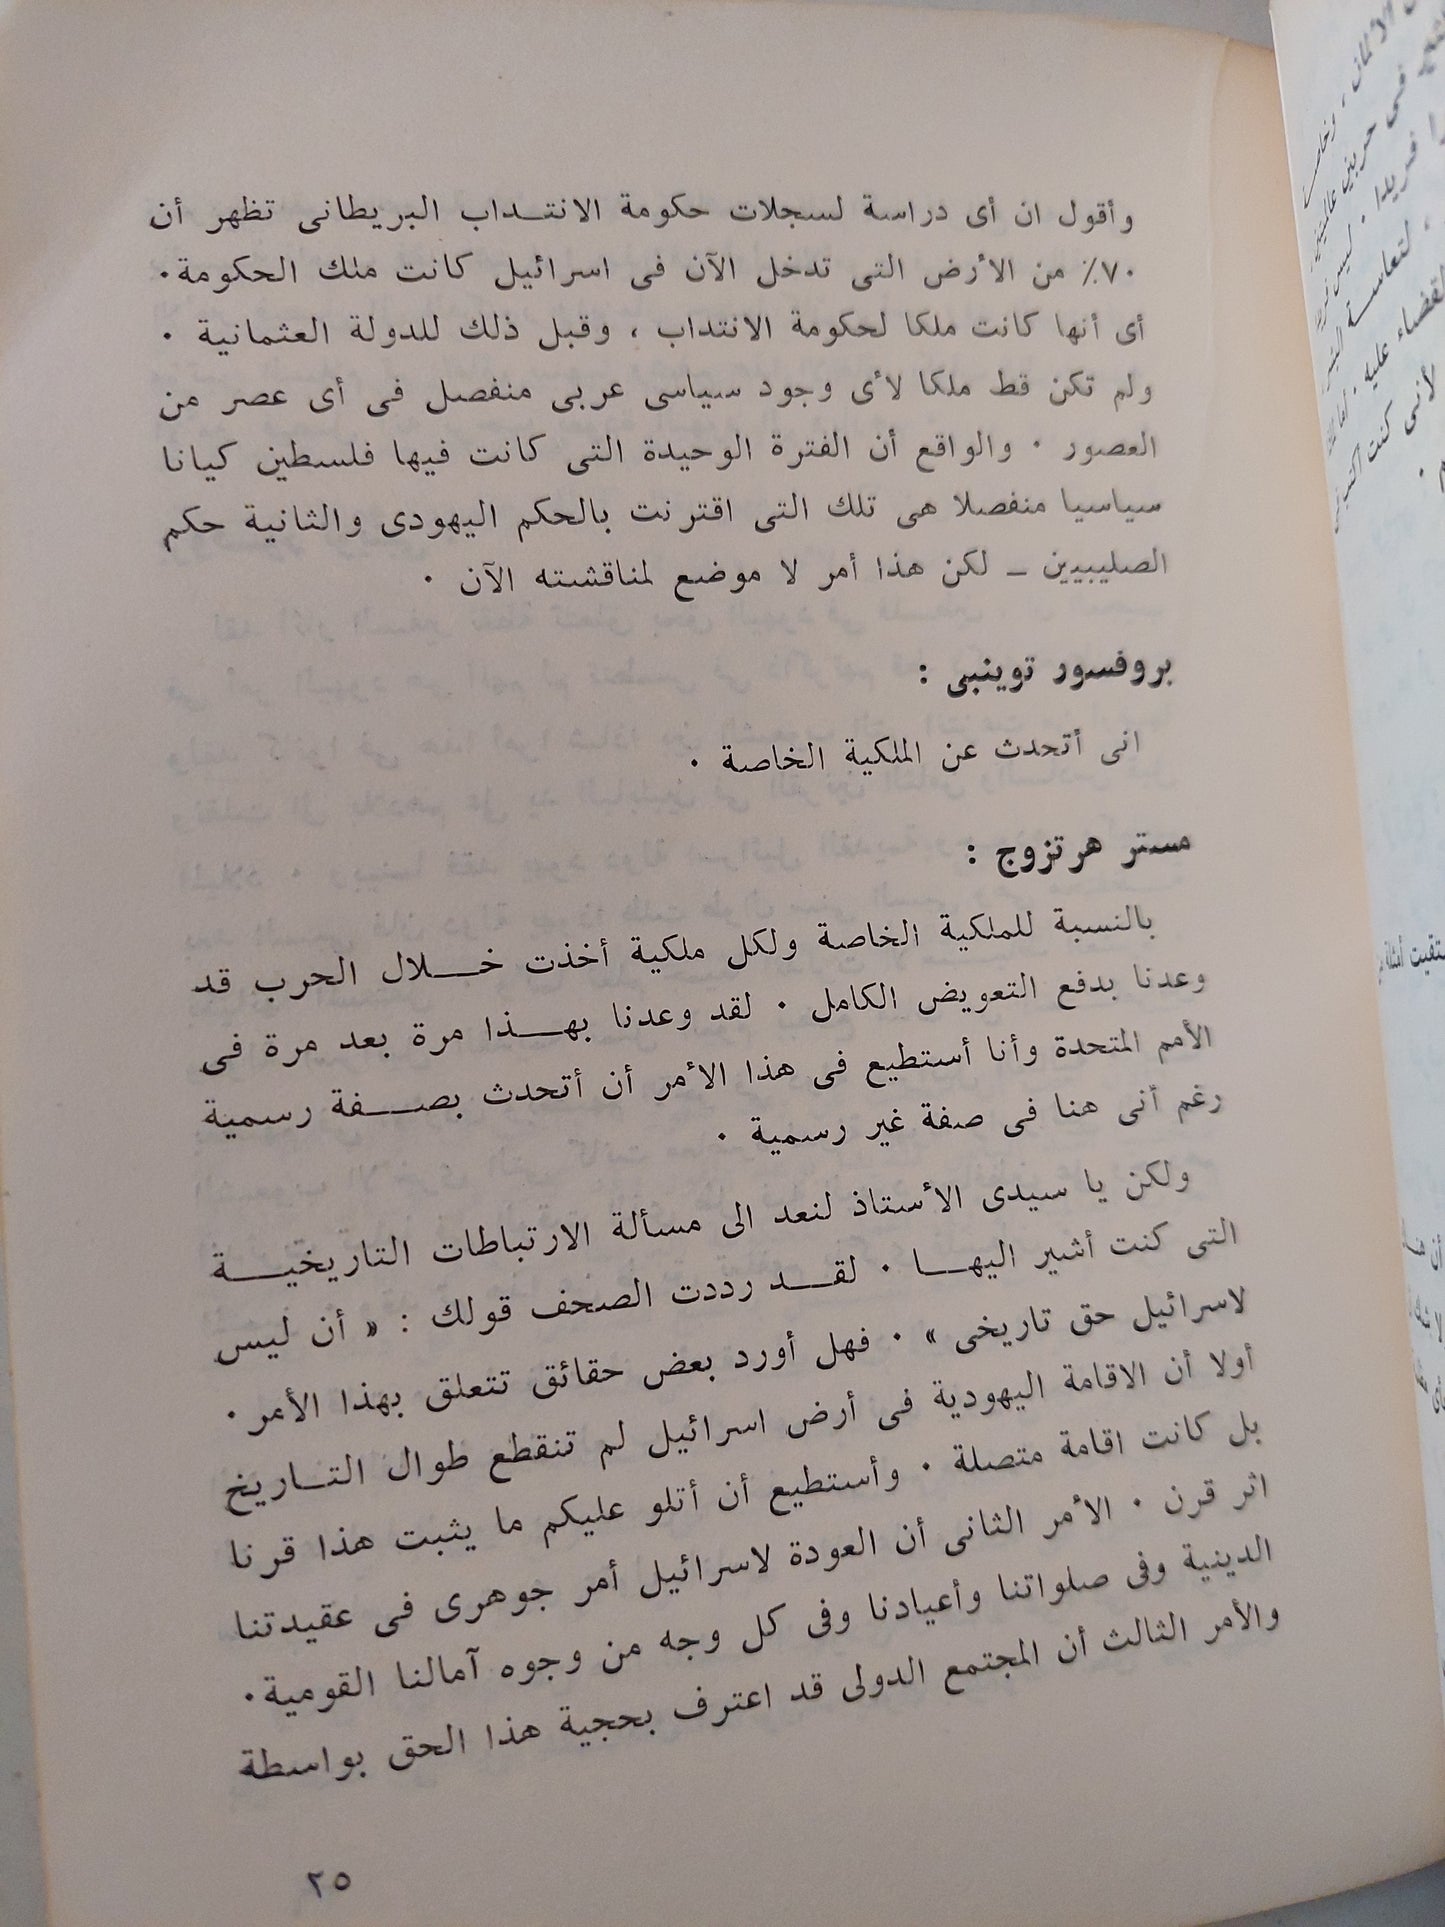 وأقول ان أى دراسة لسجلات حكومة الانتداب البريطانى تظهر أن
٧٠٪ من الأرض التى تدخل الآن فى اسرائيل كانت ملك الحكومة ٠
أى أنها كانت ملكا لحكومة الانتداب ، وقبل ذلك للدولة العثمانية ٠
ولم تكن قط ملكا لأى وجود سياسى عربى منفصل فى أى عصر من
العصور ٠ والواقع أن الفترة الوحيدة التى كانت فيها فلسطين كيانا
سياسيا منفصلا هى تلك التى اقترنت بالحكم اليهودى والثانية حكم
الصليبيين ـ لكن هذا أمر لا موضع لمناقشته الآن ٠
بروفسور توينبى :
انى أتحدث عن الملكية الخاصة ٠
مستر هرتزوج :
بالنسبة للملكية الخاصة ولكل ملكية أخذت خلال الحرب قد
وعدنا بدفع التعويض الكامل ٠ لقد وعدنا بهذا مرة بعد مرة فى
الأمم المتحدة وأنا أستطيع فى هذا الأمر أن أتحدث بصفة رسمية
رغم أنى هنا فى صفة غير رسمية ٠
ولكن يا سيدى الأستاذ لنعد الى مسألة الارتباطات التاريخية
التى كنت أشير اليها ٠ لقد رددت الصحف قولك : « أن ليس
لاسرائيل حق تاريخى » ٠ فهل أورد بعض حقائق تتعلق بهذا الأمر ٠
أولا أن الاقامة اليهودية فى أرض اسرائيل لم تنقطع طوال التاريخ
بل كانت اقامة متصلة ٠ وأستطيع أن أتلو عليكم ما يثبت هذا قرنا
اثر قرن ٠ الأمر الثانى أن العودة لاسرائيل أمر جوهرى فى عقيدتنا
الدينية وفى صلواتنا وأعيادنا وفى كل وجه من وجوه آمالنا القومية ٠
والأمر الثالث أن المجتمع الدولى قد اعترف بحجية هذا الحق بواسطة
٢٥